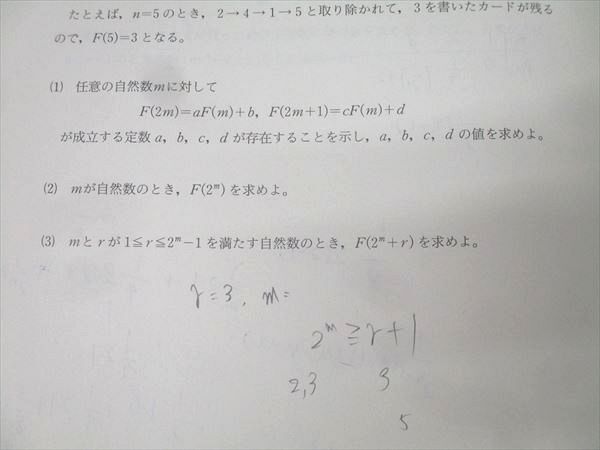 たとえば，n=5のとき，2→4→1→5と取り除かれて，3を書いたカードが残る
ので，F(5)=3となる。
(1) 任意の自然数mに対して
F(2m)=aF(m)+b，F(2m+1)=cF(m)+d
が成立する定数a，b，c，dが存在することを示し，a，b，c，dの値を求めよ。
(2) mが自然数のとき，F(2^m)を求めよ。
(3) mとrが1≦r≦2^m−1を満たす自然数のとき，F(2^m+r)を求めよ。
r=3, m=
2^m≧r+1
2,3 3
5